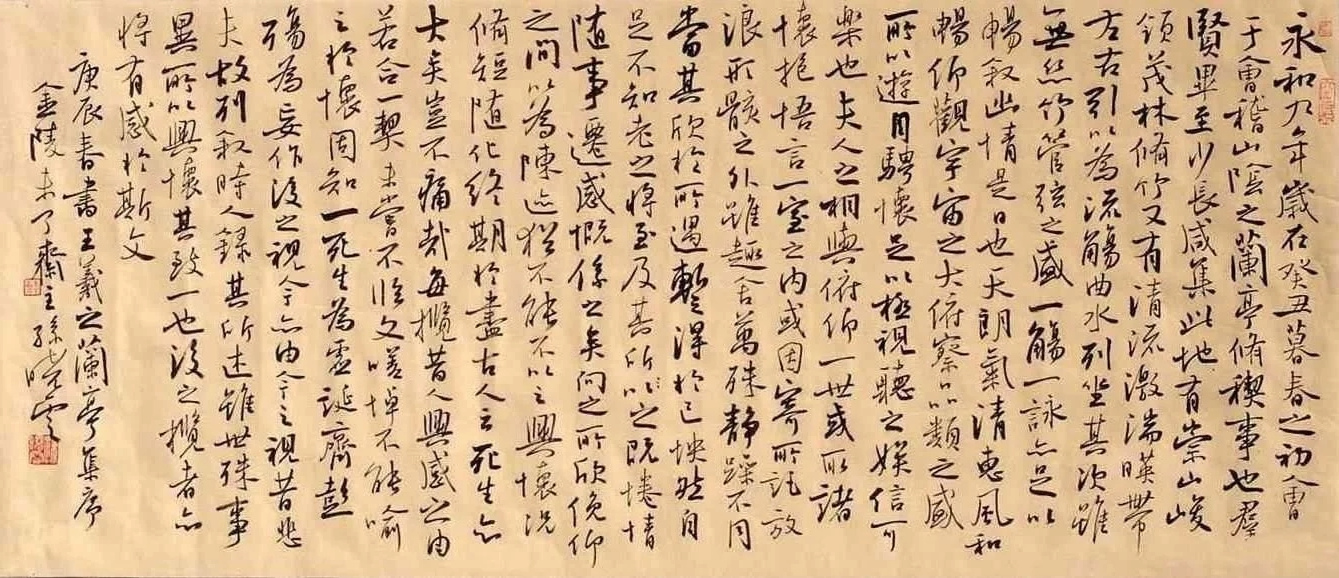 永和九年歲在癸丑暮春之初會
于會稽山陰之蘭亭脩稧事也羣
賢畢至少長咸集此地有崇山峻
領茂林脩竹又有清流激湍暎帶
左右引以為流觴曲水列坐其次雖
無絲竹管弦之盛一觴一詠亦足以
暢敘幽情是日也天朗氣清惠風和
暢仰觀宇宙之大俯察品類之盛
所以遊目騁懷足以極視聽之娛信可
樂也夫人之相與俯仰一世或取諸
懷抱悟言一室之內或因寄所託放
浪形骸之外雖趣舍萬殊靜躁不同
當其欣於所遇暫得於己怏然自
足不知老之將至及其所以之既惓情
随事遷感慨係之矣向之所欣俛仰
之間以為陳迹猶不能不以之興懷況
脩短随化終期於盡古人云死生亦
大矣豈不痛哉每攬昔人興感之由
若合一契未嘗不臨文嗟悼不能喻
之於懷固知一死生為虛誕齊彭
殤為妄作後之視今亦由今之視昔悲
夫故列敘時人錄其所述雖世殊事
異所以興懷其致一也後之攬者亦
將有感於斯文
庚辰春書王羲之蘭亭集序
金陵未了齋主孫曉雲